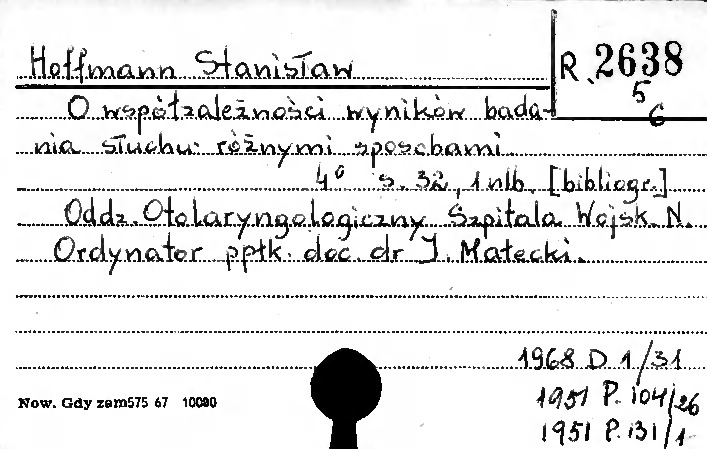 Hoffmann Stanisław
R. 2638
5
6
O współzależności wyników bada-
nia słuchu różnymi sposobami
4° s. 32, 1 nlb. [bibliogr.]
Oddz. Otolaryngologiczny Szpitala Wojsk. N.
Ordynator ppłk. doc. dr J. Małecki.
1968 D 1/31
Now. Gdy zam575 67 10000
1951 P. 104/26
1951 P. 131/1